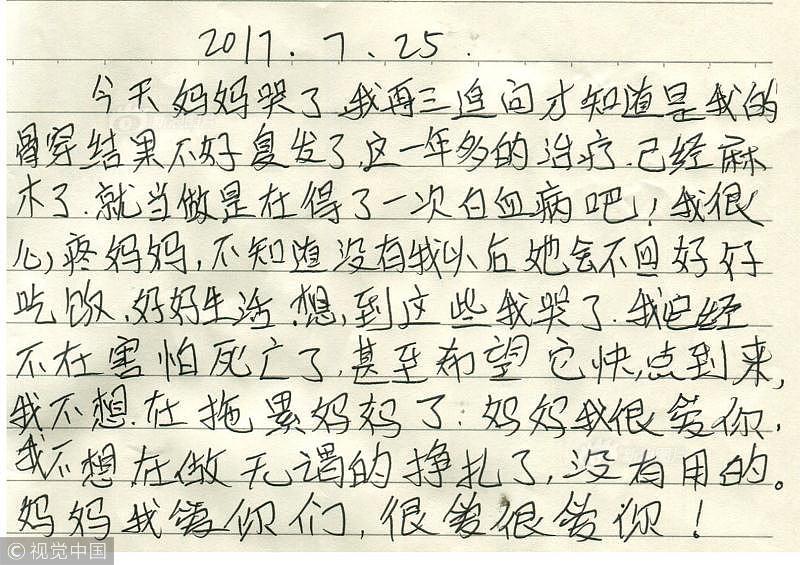 2017.7.25.
今天妈妈哭了,我再三追问才知道是我的
骨穿结果不好复发了,这一年多的治疗.已经麻
木了.就当做是在得了一次白血病吧!我很
心疼妈妈,不知道没有我以后她会不回好好
吃饭,好好生活.想到这些我哭了.我已经
不在害怕死亡了,甚至希望它快点到来,
我不想.在拖累妈妈了.妈妈我很爱你,
我不想在做无谓的挣扎了,没有用的。
妈妈我爱你们,很爱很爱你!
© 视觉中国